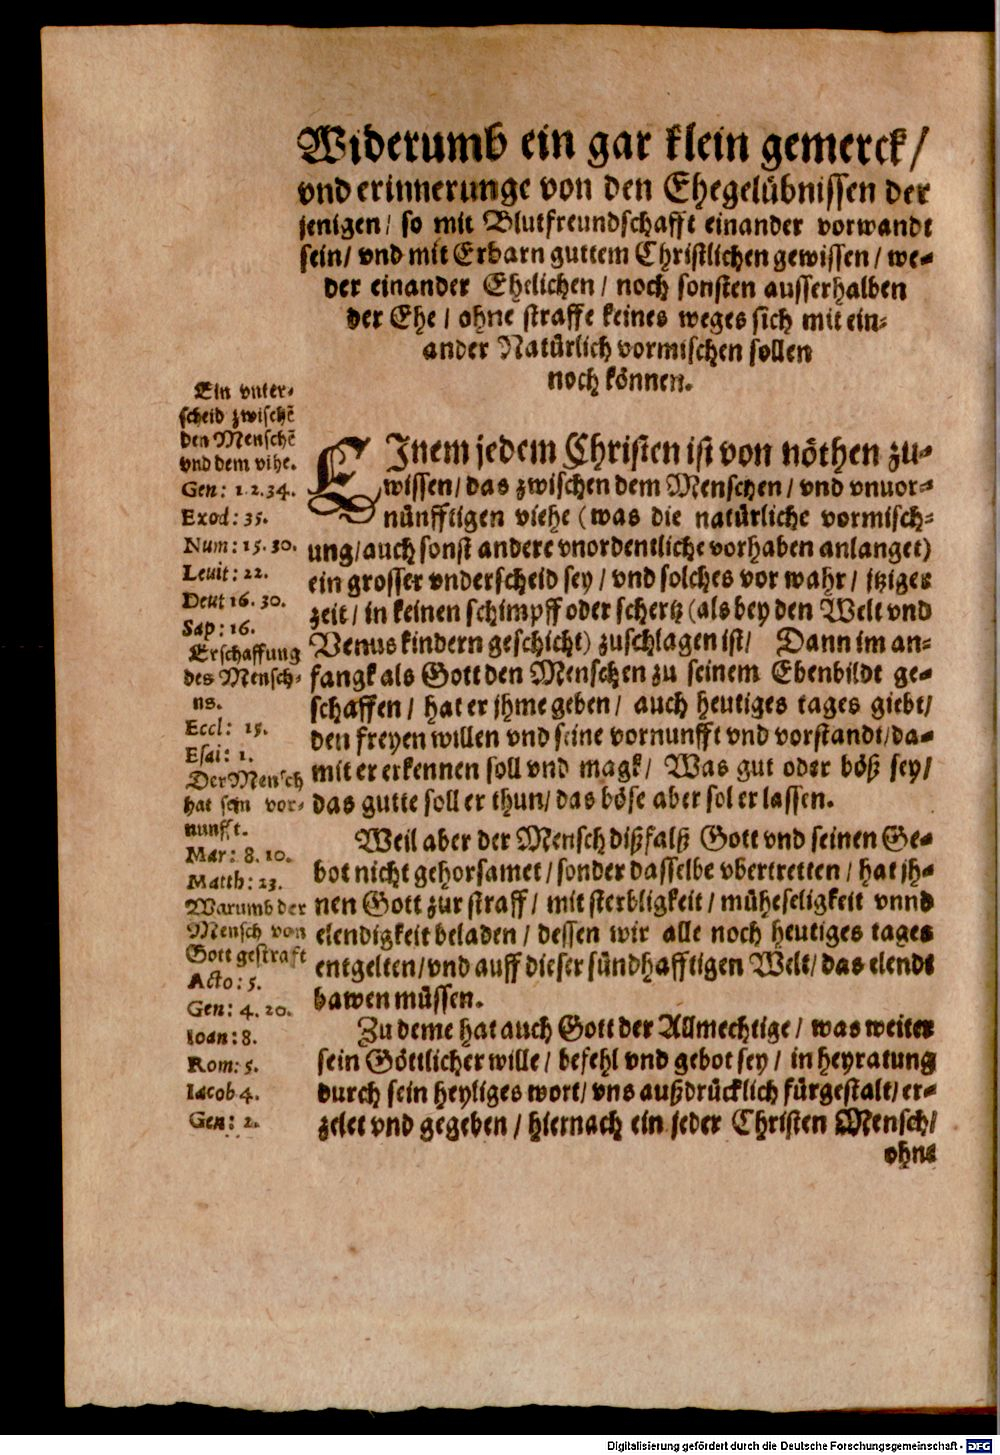 Widerumb ein gar klein gemerck/
vnd erinnerunge von den Ehegelübnissen der
jenigen/ so mit Blutfreundschafft einander vorwandt
sein/ vnd mit Erbarn guttem Christlichen gewissen/ we-
der einander Ehelichen/ noch sonsten ausserhalben
der Ehe/ ohne straffe keines weges sich mit ein-
ander Natürlich vormischen sollen
noch können.
Ein vnter-
scheid zwischẽ
den Menschẽ
vnd dem vihe.
Gen: 1.2.34.
Exod: 35.
Num: 15.30.
Leuit: 22.
Deut 16.30.
Sap: 16.
Erschaffung
des Mensch-
ns.
Eccl: 15.
Esai: 1.
Der Mensch
hat sein vor-
nunfft.
Mar: 8.10.
Matth: 23.
Warumb der
Mensch von
Gott gestraft
Acto: 5.
Gen: 4.20.
Ioan: 8.
Rom: 5.
Iacob 4.
Gen: 2.
EInem jedem Christen ist von nöthen zu-
wissen/ das zwischen dem Menschen/ vnd vnuor-
nünfftigen viehe (was die natürliche vormisch-
ung/ auch sonst andere vnordentliche vorhaben anlanget)
ein grosser vnderscheid sey/ vnd solches vor wahr/ itziger
zeit/ in keinen schimpff oder schertz (als bey den Welt vnd
Venus kindern geschicht) zuschlagen ist/ Dann im an-
fangk als Gott den Menschen zu seinem Ebenbildt ge-
schaffen/ hat er jhme geben/ auch heutiges tages giebt/
den freyen willen vnd seine vornunfft vnd vorstandt/ da-
mit er erkennen soll vnd magk/ Was gut oder böß sey/
das gutte soll er thun/ das böse aber sol er lassen.
Weil aber der Mensch dißfalß Gott vnd seinen Ge-
bot nicht gehorsamet/ sonder dasselbe vbertretten/ hat jh-
nen Gott zur straff/ mit sterbligkeit/ müheseligkeit vnnd
elendigkeit beladen/ dessen wir alle noch heutiges tages
entgelten/ vnd auff dieser sündhafftigen Welt/ das elendt
bawen müssen.
Zu deme hat auch Gott der Allmechtige/ was weiter
sein Göttlicher wille/ befehl vnd gebot sey/ in heyratung
durch sein heyliges wort/ vns außdrücklich fürgestalt/ er-
zelet vnd gegeben/ hiernach ein jeder Christen Mensch/
ohne
Digitalisierung gefördert durch die Deutsche Forschungsgemeinschaft - DFG